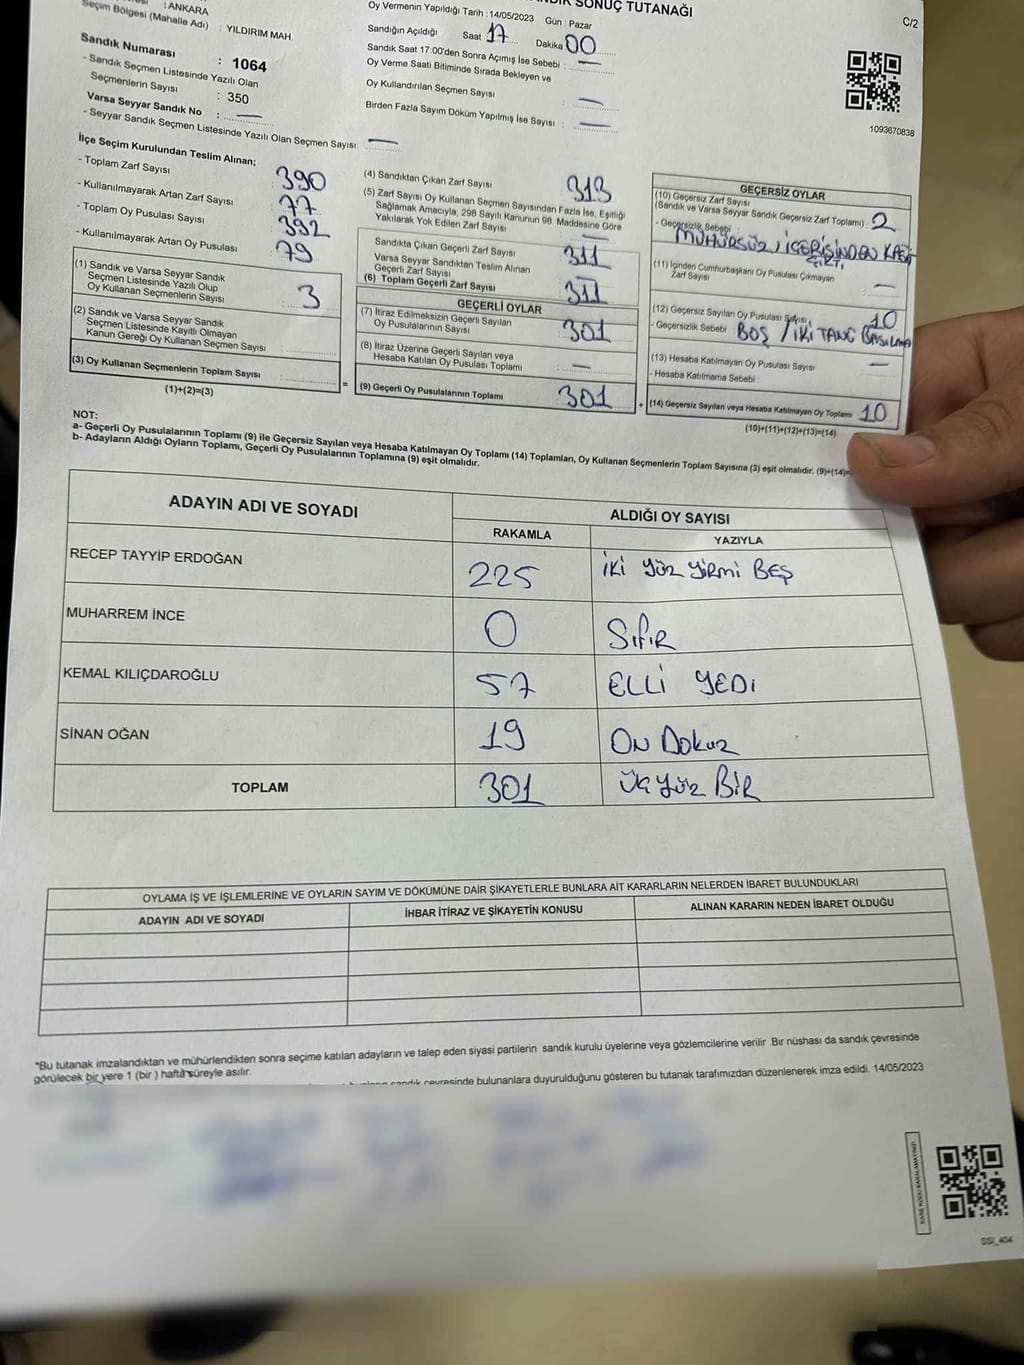 : ANKARA
Seçim Bölgesi (Mahalle Adı) : YILDIRIM MAH.
Sandık Numarası : 1064
- Sandık Seçmen Listesinde Yazılı Olan
Seçmenlerin Sayısı : 350
Varsa Seyyar Sandık No : —
- Seyyar Sandık Seçmen Listesinde Yazılı Olan Seçmen Sayısı: —
SONUÇ TUTANAĞI
Oy Vermenin Yapıldığı Tarih : 14/05/2023 Gün : Pazar
Sandığın Açıldığı Saat 17 Dakika 00
Sandık Saat 17:00'den Sonra Açımış İse Sebebi : —
Oy Verme Saati Bitiminde Sırada Bekleyen ve
Oy Kullandırılan Seçmen Sayısı : —
Birden Fazla Sayım Döküm Yapılmış İse Sayısı : —
C/2
1093670838
İlçe Seçim Kurulundan Teslim Alınan;
- Toplam Zarf Sayısı : 390
- Kullanılmayarak Artan Zarf Sayısı : 77
- Toplam Oy Pusulası Sayısı : 392
- Kullanılmayarak Artan Oy Pusulası : 79
(1) Sandık ve Varsa Seyyar Sandık
Seçmen Listesinde Yazılı Olup
Oy Kullanan Seçmenlerin Sayısı : 3
(2) Sandık ve Varsa Seyyar Sandık
Seçmen Listesinde Kayıtlı Olmayan
Kanun Gereği Oy Kullanan Seçmen Sayısı :
(3) Oy Kullanan Seçmenlerin Toplam Sayısı :
(1)+(2)=(3)
=
(4) Sandıktan Çıkan Zarf Sayısı : 313
(5) Zarf Sayısı Oy Kullanan Seçmen Sayısından Fazla İse, Eşitliği
Sağlamak Amacıyla; 298 Sayılı Kanunun 98. Maddesine Göre
Yakılarak Yok Edilen Zarf Sayısı : —
Sandıkta Çıkan Geçerli Zarf Sayısı : 311
Varsa Seyyar Sandıktan Teslim Alınan
Geçerli Zarf Sayısı : —
(6) Toplam Geçerli Zarf Sayısı : 311
GEÇERLİ OYLAR
(7) İtiraz Edilmeksizin Geçerli Sayılan
Oy Pusulalarının Sayısı : 301
(8) İtiraz Üzerine Geçerli Sayılan veya
Hesaba Katılan Oy Pusulası Toplamı : —
(9) Geçerli Oy Pusulalarının Toplamı : 301
+
GEÇERSİZ OYLAR
(10) Geçersiz Zarf Sayısı
(Sandık ve Varsa Seyyar Sandık Geçersiz Zarf Toplamı) : 2
- Geçersizlik Sebebi :
MÜHÜRSÜZ / İÇERİSİNDEN KAĞIT
ÇIKTI
(11) İçinden Cumhurbaşkanı Oy Pusulası Çıkmayan
Zarf Sayısı : —
(12) Geçersiz Sayılan Oy Pusulası Sayısı : 10
- Geçersizlik Sebebi BOŞ / İKİ TANE BASILMA
(13) Hesaba Katılmayan Oy Pusulası Sayısı : —
- Hesaba Katılmama Sebebi
(14) Geçersiz Sayılan veya Hesaba Katılmayan Oy Toplamı : 10
(10)+(11)+(12)+(13)=(14)
NOT:
a- Geçerli Oy Pusulalarının Toplamı (9) ile Geçersiz Sayılan veya Hesaba Katılmayan Oy Toplamı (14) Toplamları, Oy Kullanan Seçmenlerin Toplam Sayısına (3) eşit olmalıdır. (9)+(14)=
b- Adayların Aldığı Oyların Toplamı, Geçerli Oy Pusulalarının Toplamına (9) eşit olmalıdır.
ADAYIN ADI VE SOYADI ALDIĞI OY SAYISI
RAKAMLA YAZIYLA
RECEP TAYYİP ERDOĞAN 225 İKİ YÜZ YİRMİ BEŞ
MUHARREM İNCE 0 SIFIR
KEMAL KILIÇDAROĞLU 57 ELLİ YEDİ
SİNAN OĞAN 19 ON DOKUZ
TOPLAM 301 ÜÇ YÜZ BİR
OYLAMA İŞ VE İŞLEMLERİNE VE OYLARIN SAYIM VE DÖKÜMÜNE DAİR ŞİKAYETLERLE BUNLARA AİT KARARLARIN NELERDEN İBARET BULUNDUKLARI
ADAYIN ADI VE SOYADI İHBAR İTİRAZ VE ŞİKAYETİN KONUSU ALINAN KARARIN NEDEN İBARET OLDUĞU
*Bu tutanak imzalandıktan ve mühürlendikten sonra seçime katılan adayların ve talep eden siyasi partilerin sandık kurulu üyelerine veya gözlemcilerine verilir .Bir nüshası da sandık çevresinde
görülecek bir yere 1 (bir ) hafta süreyle asılır.
sandık çevresinde bulunanlara duyurulduğunu gösteren bu tutanak tarafımızdan düzenlenerek imza edildi. 14/05/2023
KARE KODU KARALAMAYINIZ!
SSI_404